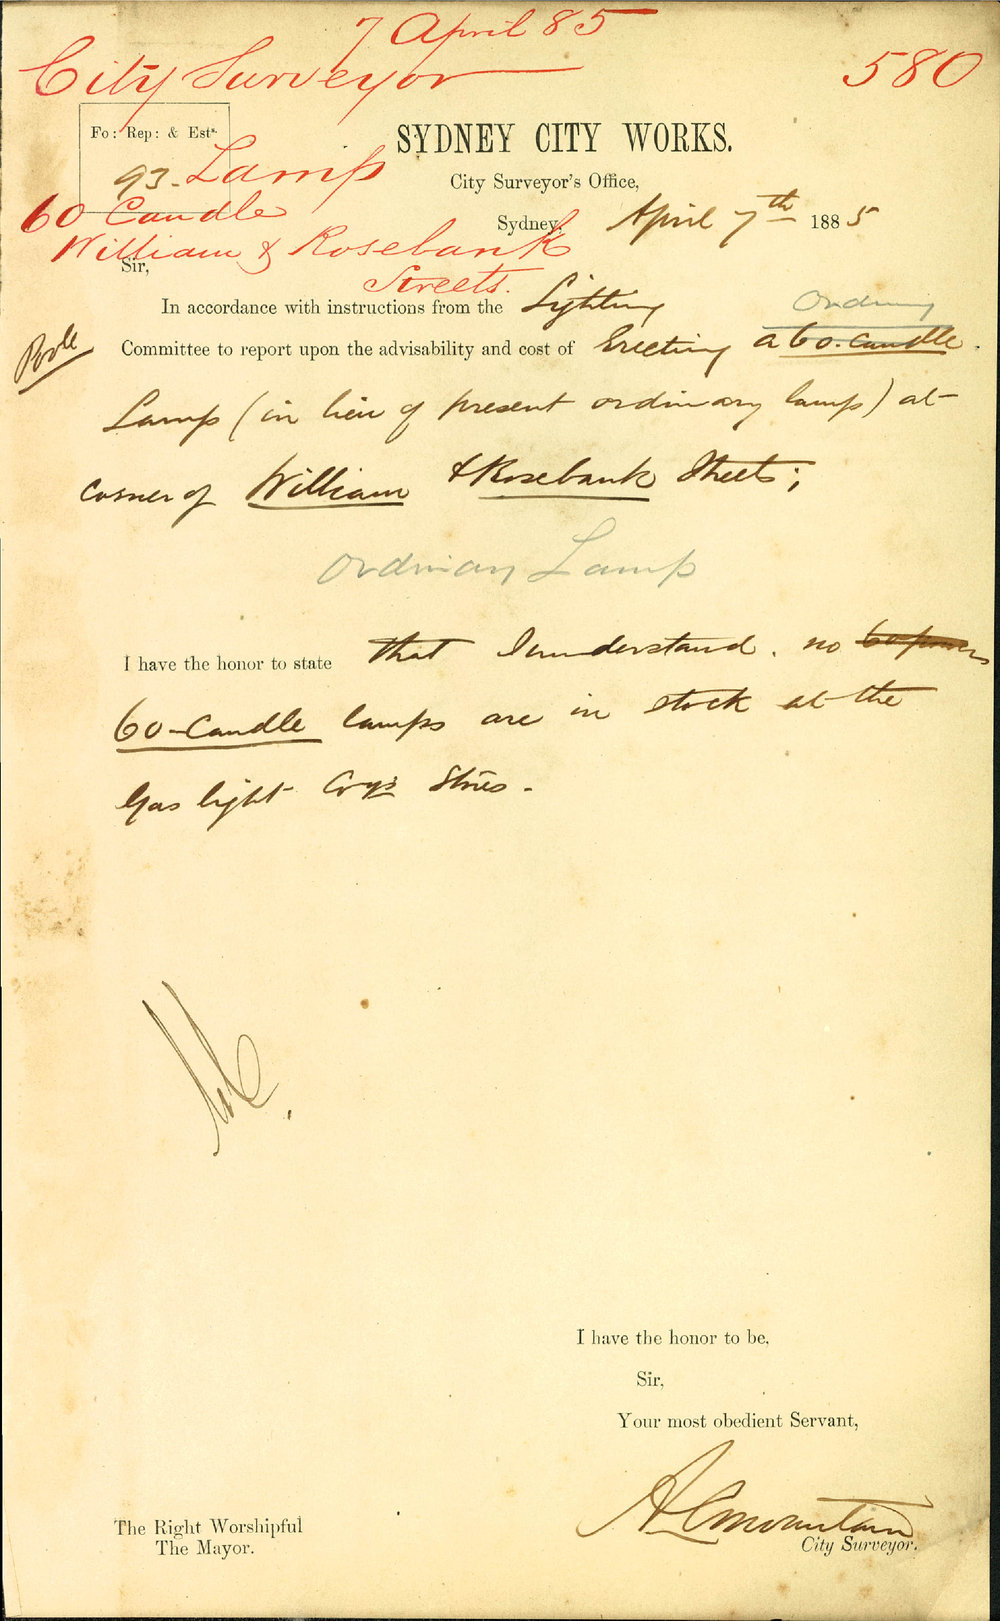 7 April 85
City Surveyor
580
Fo: Rep: & Ests.
SYDNEY CITY WORKS.
93. Lamp
City Surveyor's Office,
60 Candle
Sydney, April 7th 1885
William & Rosebank
Streets.
Sir,
In accordance with instructions from the Lighting
Ordinary
Committee to report upon the advisability and cost of Erecting a 60-Candle
Lamp (in lieu of present ordinary lamp) at
corner of William & Rosebank Streets;
Ordinary Lamp
I have the honor to state that I understand no
60-Candle lamps are in stock at the
Gas light Coy's Stores.
I have the honor to be,
Sir,
Your most obedient Servant,
A C Mountain
City Surveyor.
The Right Worshipful
The Mayor.